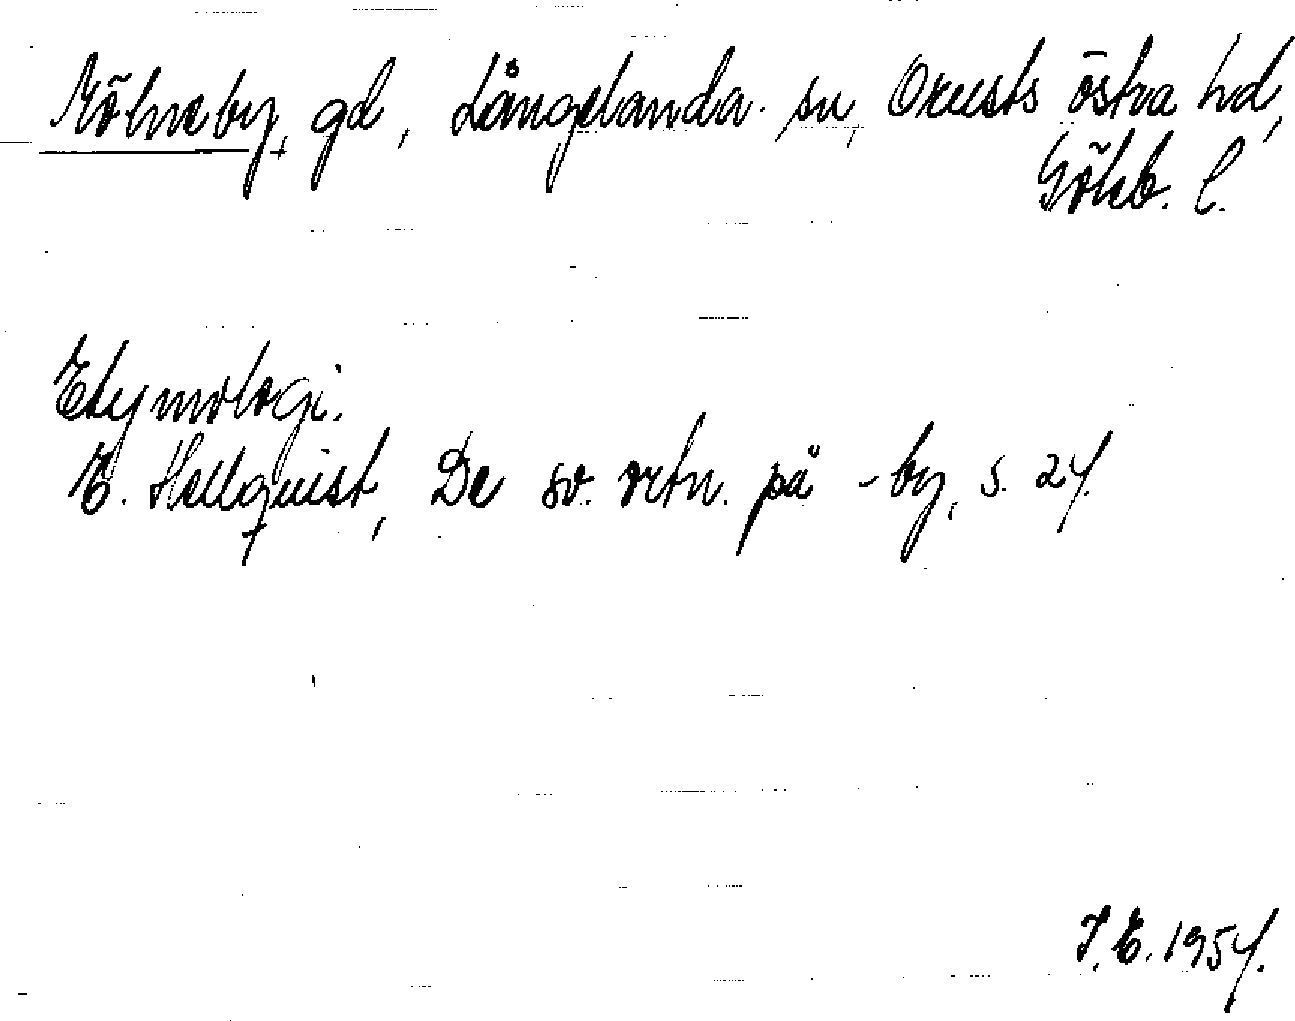 Mölneby, gd, Långelanda sn, Orusts östra hd,
Göteb. l.
Etymologi:
E. Hellquist, De sv. ortn. på -by, s. 24.
I. E. 1954.